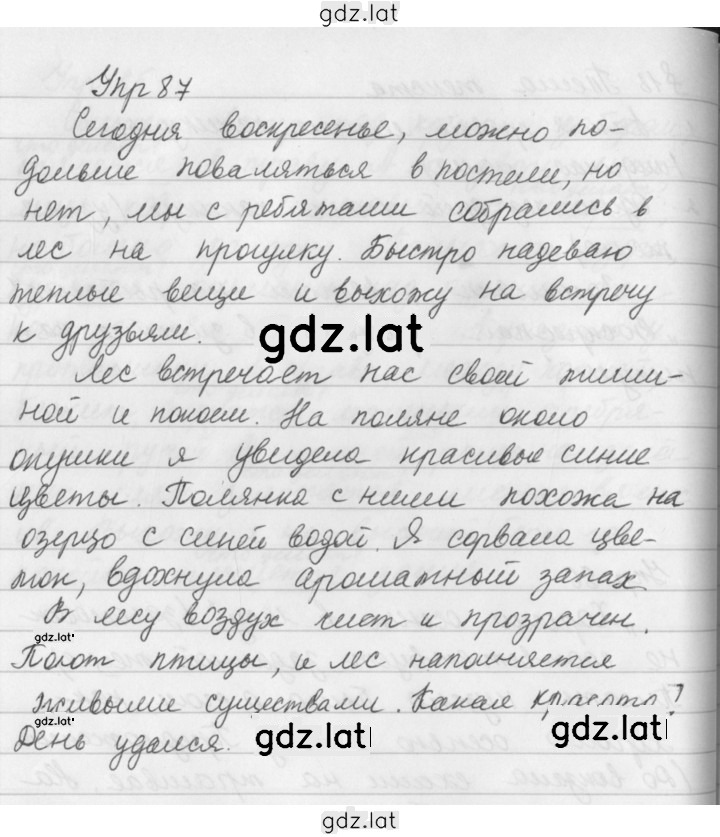 gdz.lat
Упр 87
Сегодня воскресенье, можно по-
дольше поваляться в постели, но
нет, мы с ребятами собрались в
лес на прогулку. Быстро надеваю
теплые вещи и выхожу на встречу
к друзьям.
gdz.lat
Лес встречает нас своей тиши-
ной и покоем. На поляне около
опушки я увидела красивые синие
цветы. Полянка с ними похожа на
озерцо с синей водой. Я сорвала цве-
ток, вдохнула ароматный запах
В лесу воздух чист и прозрачен.
gdz.lat
Полот птицы, и лес наполняется
живыми существами. Какая красота!
gdz.lat
День удался.
gdz.lat
gdz.lat
gdz.lat